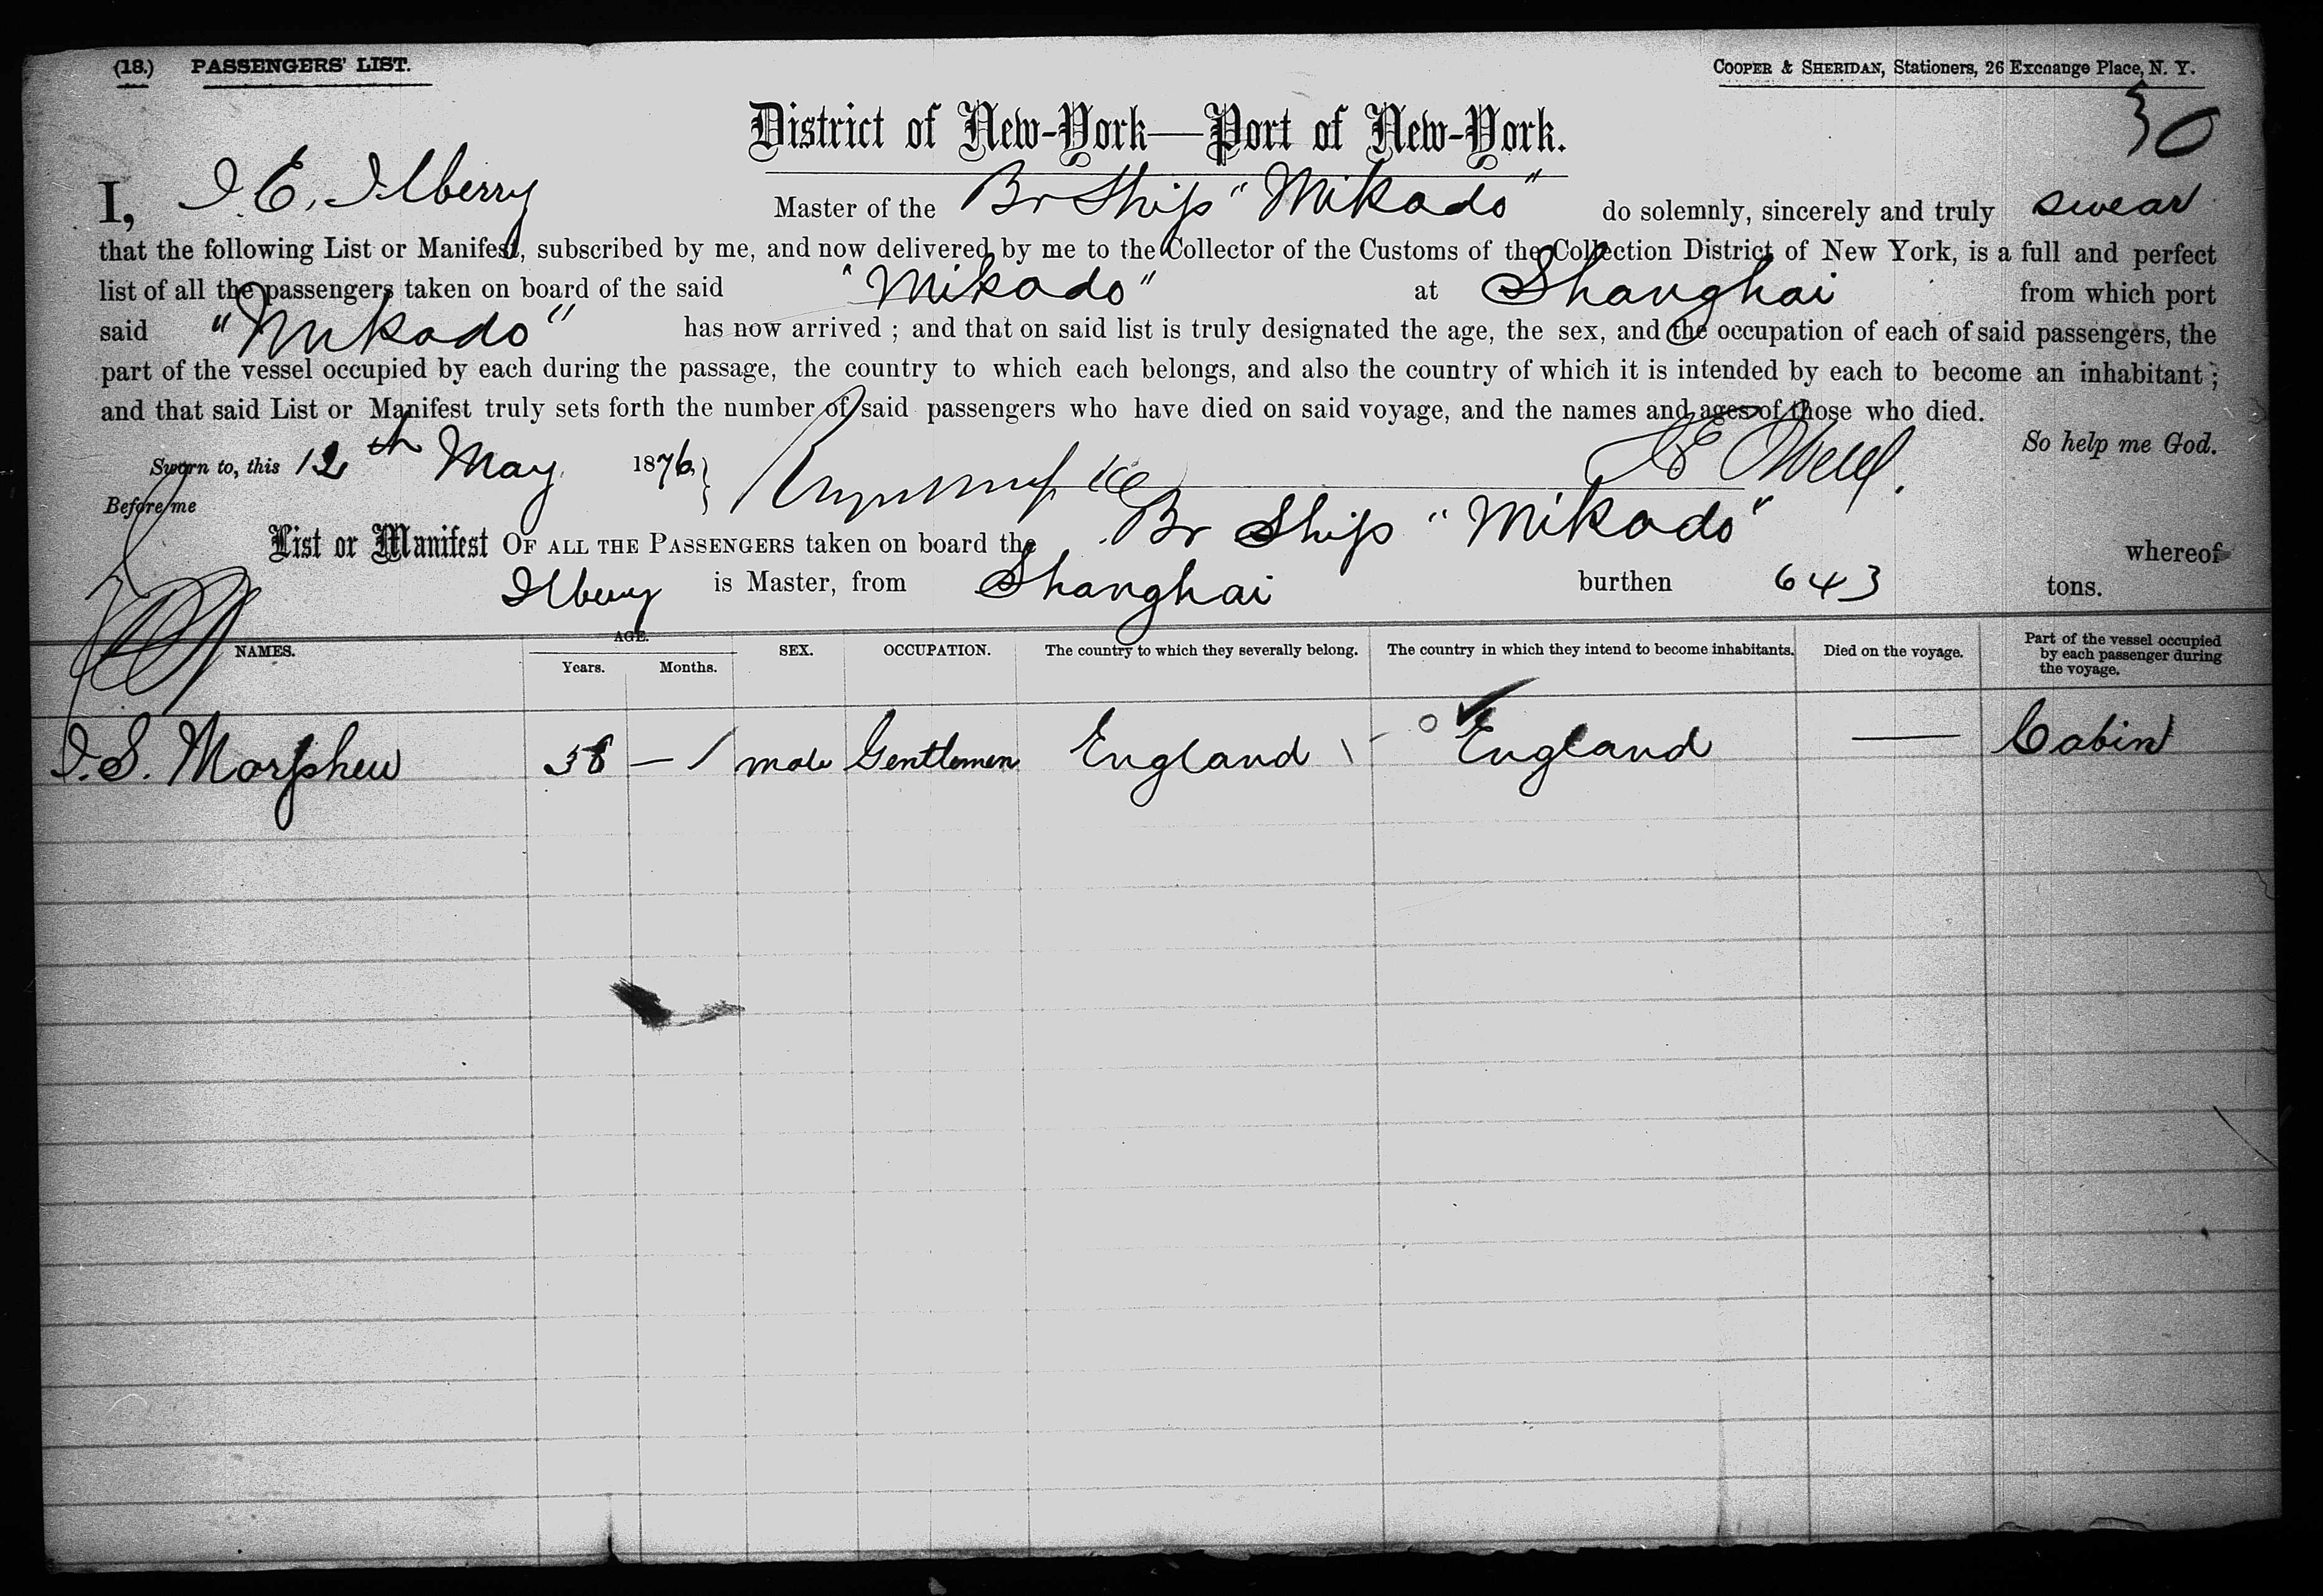 (18.) PASSENGERS' LIST. COOPER & SHERIDAN, Stationers, 26 Exchange Place, N. Y.
30
District of New-York—Port of New-York.
I, I. E. Ilberry Master of the Br Ship "Mikado" do solemnly, sincerely and truly swear
that the following List or Manifest, subscribed by me, and now delivered by me to the Collector of the Customs of the Collection District of New York, is a full and perfect
list of all the passengers taken on board of the said "Mikado" at Shanghai from which port
said "Mikado" has now arrived ; and that on said list is truly designated the age, the sex, and the occupation of each of said passengers, the
part of the vessel occupied by each during the passage, the country to which each belongs, and also the country of which it is intended by each to become an inhabitant ;
and that said List or Manifest truly sets forth the number of said passengers who have died on said voyage, and the names and ages of those who died.
So help me God.
Sworn to, this 12th May 1876
Before me
List or Manifest OF ALL THE PASSENGERS taken on board the Br Ship "Mikado" whereof
Ilberry is Master, from Shanghai burthen 643 tons.
NAMES. AGE. Years. Months. SEX. OCCUPATION. The country to which they severally belong. The country in which they intend to become inhabitants. Died on the voyage. Part of the vessel occupied by each passenger during the voyage.
I. S. Morphew 38 — / male Gentlemen England \ - o ✓ England — Cabin